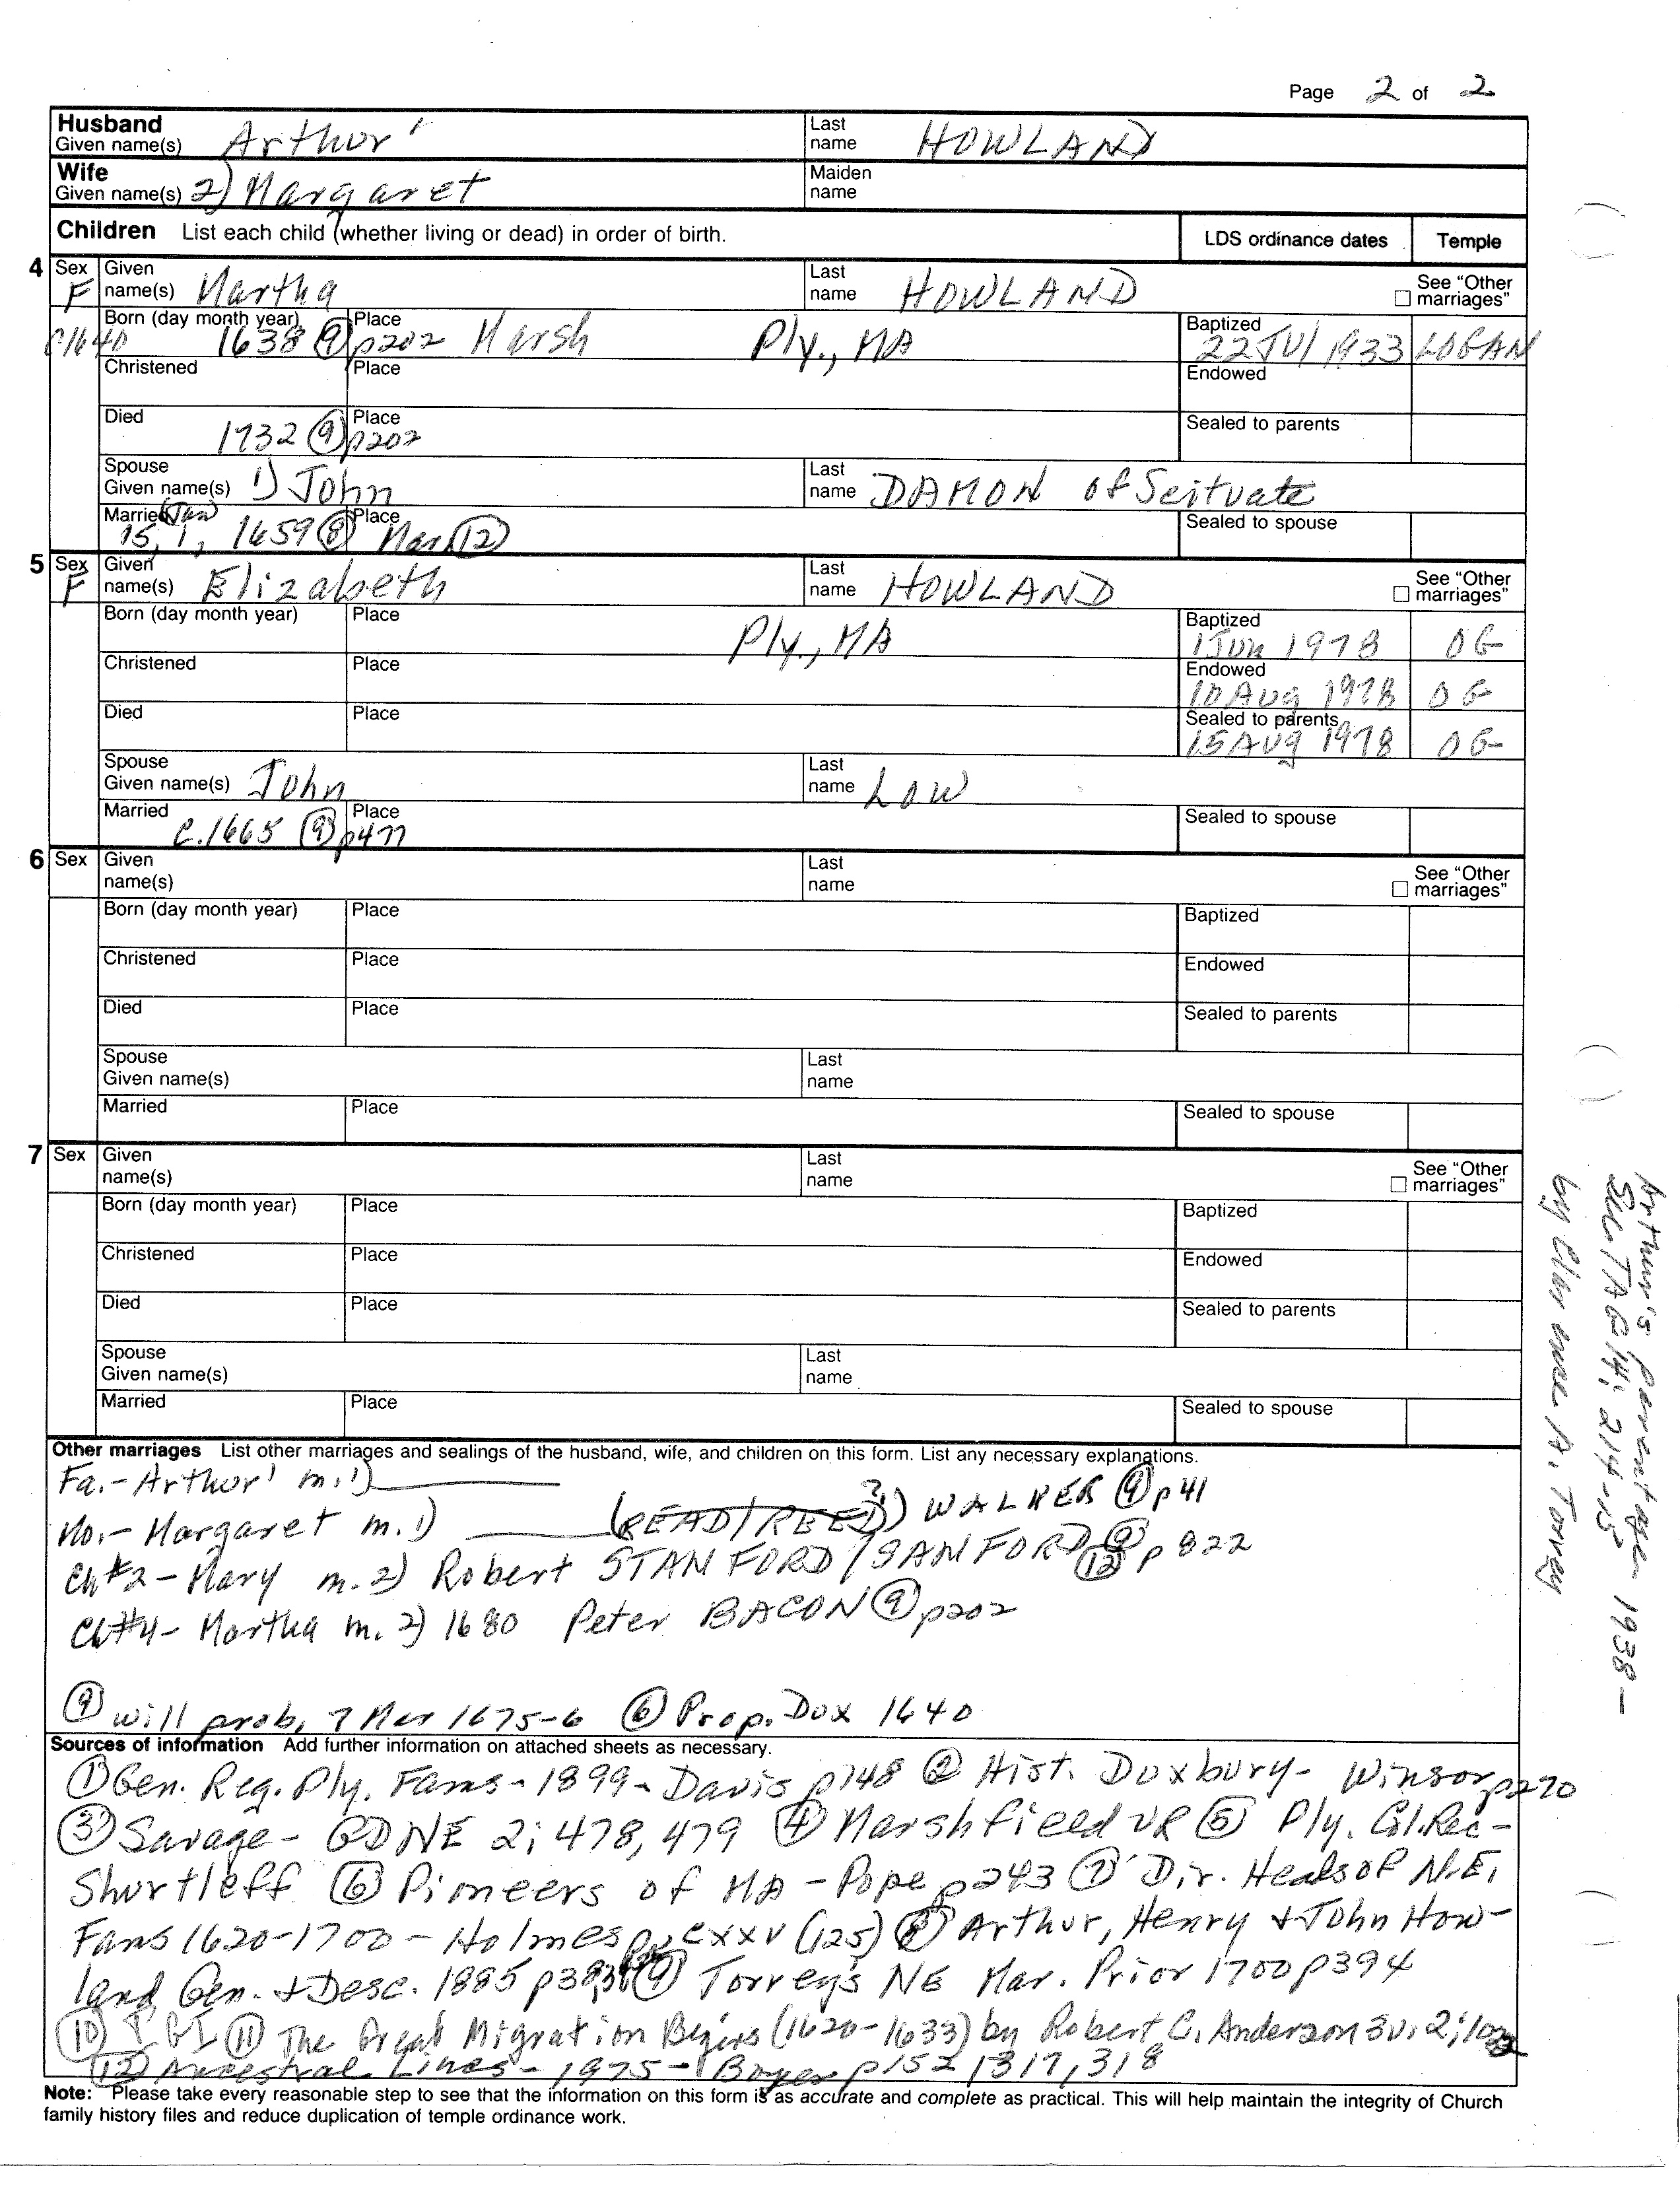 Page 2 of 2
Husband Given name(s) Arthur' Last name HOWLAND
Wife Given name(s) 2) Margaret Maiden name
Children List each child (whether living or dead) in order of birth. LDS ordinance dates Temple
4 Sex F Given name(s) Martha Last name HOWLAND See "Other marriages"
Born (day month year) c1640 1638 (9) p202 Place Marsh Ply., MA Baptized 22 JUl 1933 LOGAN
Christened Place Endowed
Died 1732 (9) p202 Place Sealed to parents
Spouse Given name(s) 1) John Last name DAMON of Scituate
Married (Jan) 15, 1, 1659 (8) Place Mar (12) Sealed to spouse
5 Sex F Given name(s) Elizabeth Last name HOWLAND See "Other marriages"
Born (day month year) Place Ply., MA Baptized 1 Jun 1978 OG
Christened Place Endowed 10 Aug 1978 OG
Died Place Sealed to parents 15 AUg 1978 OG
Spouse Given name(s) John Last name LOW
Married c.1665 (9) p477 Place Sealed to spouse
6 Sex Given name(s) Last name See "Other marriages"
Born (day month year) Place Baptized
Christened Place Endowed
Died Place Sealed to parents
Spouse Given name(s) Last name
Married Place Sealed to spouse
7 Sex Given name(s) Last name See "Other marriages"
Born (day month year) Place Baptized
Christened Place Endowed
Died Place Sealed to parents
Spouse Given name(s) Last name
Married Place Sealed to spouse
Other marriages List other marriages and sealings of the husband, wife, and children on this form. List any necessary explanations.
Fa.- Arthur' m. 1)
Mo.- Margaret m. 1) (READ/REED?) WALKER (9) p41
Ch#2 - Mary m. 2) Robert STANFORD/SANFORD (9) (12) p 822
Ch#4 - Martha m. 2) 1680 Peter BACON (9) p202
(9) will prob. 7 Mar 1675-6 (6) Prop. Dux 1640
Sources of information Add further information on attached sheets as necessary.
(1) Gen. Reg. Ply. Fams - 1899 - Davis p148 (2) Hist. Duxbury - Winsor p270
(3) Savage - GDNE 2; 478, 479 (4) Marshfieed VR (5) Ply. Col. Rec -
Shurtleff (6) Pioneers of MA - Pope p243 (7) Dir. Heads of N.E.
Fams 1620-1700 - Holmes p. cxxv (125) (8) Arthur, Henry + John How-
land Gen. + Desc. 1885 p383 (9) Torrey's NE Mar. Prior 1700 p394
(10) IGI (11) The Great Migration Begins (1620-1633) by Robert C. Anderson 3v. 2;
(12) Ancestral Lines - 1975 - Boyer p152, 317, 318
Note: Please take every reasonable step to see that the information on this form is as accurate and complete as practical. This will help maintain the integrity of Church
family history files and reduce duplication of temple ordinance work.
Arthur's parentage - 1938 -
See TAG 14; 214-15
by Clarence A. Torrey